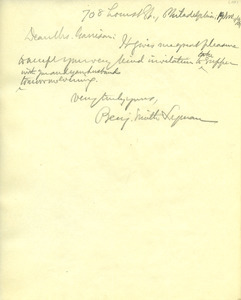 708 Locust St., Philadelphia,
Dear Mrs. Garrison: It gives me great pleasure
to accept your very kind invitation to supper
with you and your husband
tomorrow evening.
Very truly yours,
Benj. Smith Lyman